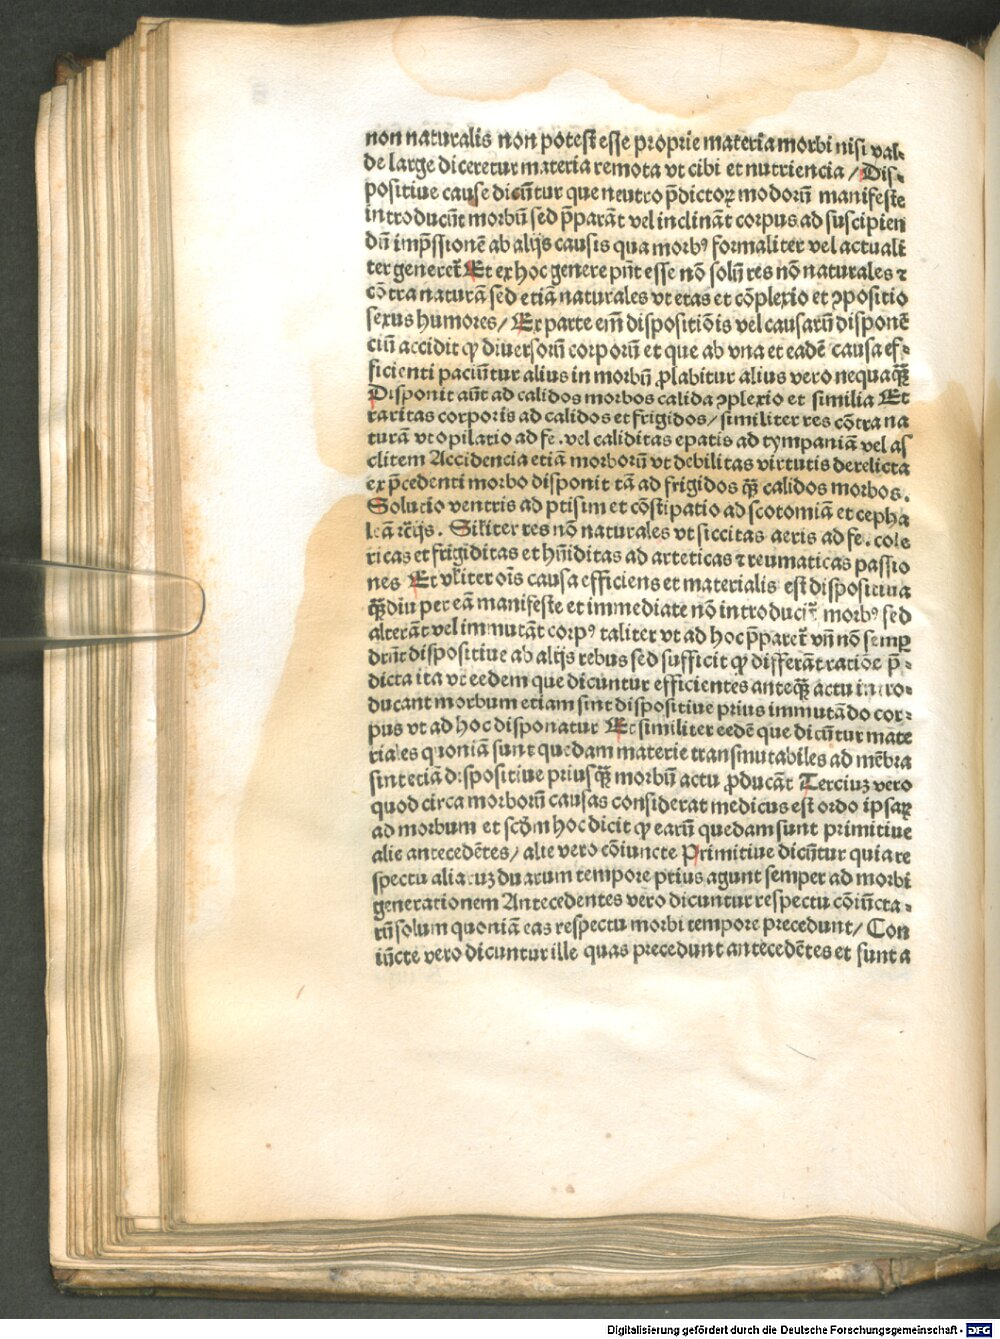 non naturalis non potest esse proprie materia morbi nisi val⸗
de large diceretur materia remota vt cibi et nutriencia / Dis⸗
positiue cause dicūtur que neutro p̄dictoꝝ modorū manifeste
introducūt morbū sed p̄parāt vel inclināt corpus ad suscipien
dū imp̄ssionē ab alijs causis qua morbꝰ formaliter vel actuali
ter generet̄ Et ex hoc genere pn̄t esse nō solū res nō naturales ⁊
cōtra naturā sed etiā naturales vt etas et cōplexio et ꝯpositio
sexus humores / Ex parte em̄ dispositiōis vel causarū disponē
ciū accidit qꝫ diuersorū corporū et que ab vna et eadē causa ef⸗
ficienti paciūtur alius in morbū ꝓlabitur alius vero nequaqȝ̄
Disponit aūt ad calidos morbos calida ꝯplexio et similia Et
raritas corporis ad calidos et frigidos / similiter res cōtra na
turā vt opilatio ad fe. vel caliditas epatis ad tympaniā vel as
clitem Accidencia etiā morborū vt debilitas virtutis derelicta
ex p̄cedenti morbo disponit tā ad frigidos qȝ̄ calidos morbos.
Solutio ventris ad ptisim et cōstipatio ad scotomiā et cepha
leā ⁊c̄ijs. Silīter res nō naturales vt siccitas aeris ad fe. cole
ricas et frigiditas et hūiditas ad arteticas ⁊ reumaticas passio
nes Et vl̄iter oīs causa efficiens et materialis est dispositiua
qȝ̄diu per eā manifeste et immediate nō introducit̄ morbꝰ sed
alterāt vel immutāt corpꝰ taliter vt ad hoc p̄paret̄ vn̄ nō semꝑ
dn̄t dispositiue ab alijs rebus sed sufficit qꝫ differāt ratiōe p̄⸗
dicta ita vt eedem que dicuntur efficientes anteqȝ̄ actu intro⸗
ducant morbum etiam sint dispositiue prius immutādo cor⸗
pus vt ad hoc disponatur Et similiter eedē que dicūtur mate
riales quoniā sunt quedam materie transmutabiles ad mēbra
sint etiā dispositiue priusqȝ̄ morbū actu ꝓducāt Terciuꝫ vero
quod circa morborū causas considerat medicus est ordo ipsaꝝ
ad morbum et scd̄m hoc dicit qꝫ earū quedam sunt primitiue
alie antecedētes / alie vero cōiuncte Primitiue dicūtur quia re
spectu aliaruꝫ duarum tempore prius agunt semper ad morbi
generationem Antecedentes vero dicuntur respectu cōiūcta⸗
rū solum quoniā eas respectu morbi tempore precedunt / Con
iūcte vero dicuntur ille quas precedunt antecedētes et sunt a
Digitalisierung gefördert durch die Deutsche Forschungsgemeinschaft - DFG